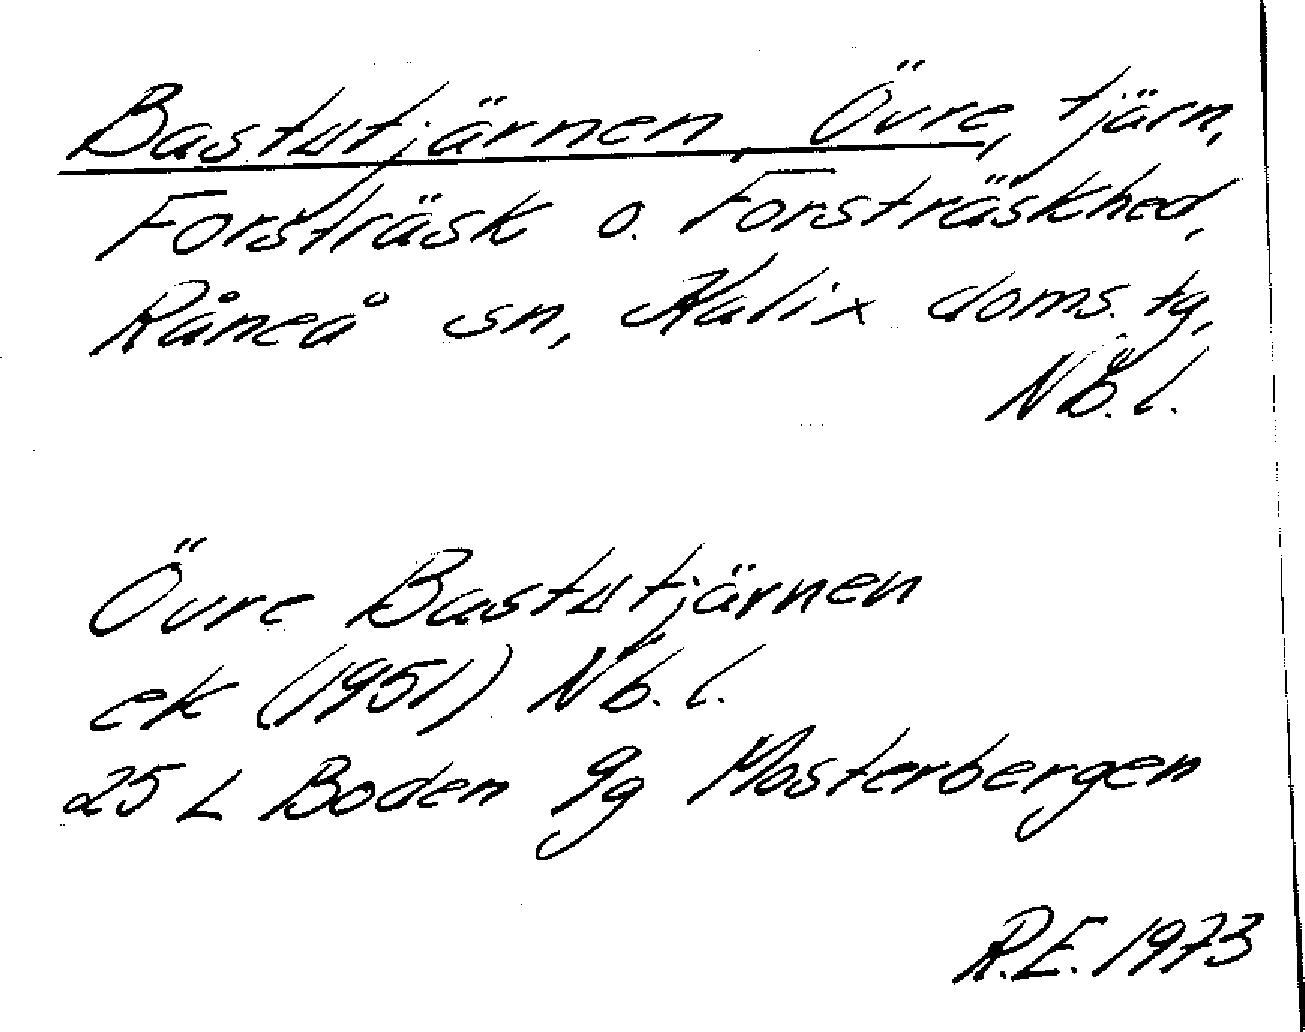 Bastutjärnen, Övre, tjärn,
Forsträsk o. Forsträskhed,
Råneå sn, Kalix doms. tg,
Nb. l.
Övre Bastutjärnen
ek (1951) Nb. l.
25 L Boden 9g Mosterbergen
R.E. 1973